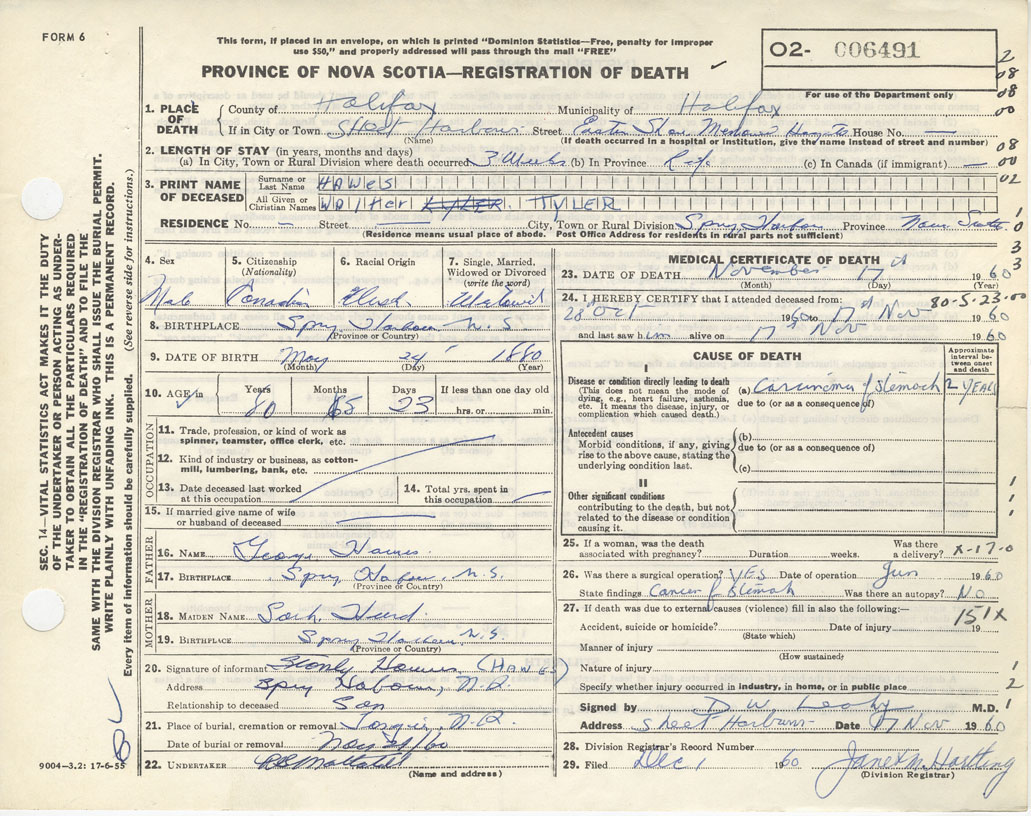 FORM 6
This form, if placed in an envelope, on which is printed "Dominion Statistics—Free, penalty for improper
use $50," and properly addressed will pass through the mail "FREE"
O2- 006491
PROVINCE OF NOVA SCOTIA—REGISTRATION OF DEATH
For use of the Department only
2
08
08
00
08
00
02
1
0
3
3
1. PLACE OF DEATH County of Halifax Municipality of Halifax
If in City or Town Sheet Harbour Street Eastern Shore Memorial Hospital House No. —
(Name) (If death occurred in a hospital or institution, give the name instead of street and number)
2. LENGTH OF STAY (in years, months and days)
(a) In City, Town or Rural Division where death occurred 3 Weeks (b) In Province (c) In Canada (if immigrant) —
3. PRINT NAME OF DECEASED
Surname or Last Name HAWES
All Given or Christian Names WALTER TYLER
RESIDENCE No. — Street — City, Town or Rural Division Spry Harbour Province Nova Scotia
(Residence means usual place of abode. Post Office Address for residents in rural parts not sufficient)
4. Sex Male
5. Citizenship (Nationality) Canadian
6. Racial Origin
7. Single, Married, Widowed or Divorced (write the word) Widowed
8. BIRTHPLACE Spry Harbour N.S.
(Province or Country)
9. DATE OF BIRTH May 24 1880
(Month) (Day) (Year)
10. AGE in Years Months Days If less than one day old
80 5 23 hrs. or min.
OCCUPATION
11. Trade, profession, or kind of work as spinner, teamster, office clerk, etc.
12. Kind of industry or business, as cotton-mill, lumbering, bank, etc.
13. Date deceased last worked at this occupation
14. Total yrs. spent in this occupation
15. If married give name of wife or husband of deceased
FATHER
16. NAME George Hawes
17. BIRTHPLACE Spry Harbour, N.S.
(Province or Country)
MOTHER
18. MAIDEN NAME
19. BIRTHPLACE Spry Harbour N.S.
(Province or Country)
20. Signature of informant Stanly Hawes (HAWES)
Address Spry Harbour, N.S.
Relationship to deceased Son
21. Place of burial, cremation or removal
Date of burial or removal
22. UNDERTAKER
(Name and address)
9004—3.2: 17-6-55
MEDICAL CERTIFICATE OF DEATH
23. DATE OF DEATH November 17th 1960
(Month) (Day) (Year)
24. I HEREBY CERTIFY that I attended deceased from: 80-5-23-00
28 Oct 1960 to 17th Nov 1960
and last saw him alive on 17th Nov 1960
CAUSE OF DEATH
Approximate interval between onset and death
I
Disease or condition directly leading to death
(This does not mean the mode of dying, e.g., heart failure, asthenia, etc. It means the disease, injury, or complication which caused death.)
(a) Carcinoma of Stomach 2 YEAR
due to (or as a consequence of)
Antecedent causes
Morbid conditions, if any, giving rise to the above cause, stating the underlying condition last.
(b)
due to (or as a consequence of)
(c)
II
Other significant conditions
contributing to the death, but not related to the disease or condition causing it.
1
1
1
25. If a woman, was the death associated with pregnancy? Duration weeks. Was there a delivery? X-17-0
26. Was there a surgical operation? YES Date of operation Jun 1960
State findings Cancer of Stomach Was there an autopsy? NO
27. If death was due to external causes (violence) fill in also the following:—
151X
Accident, suicide or homicide? Date of injury 19
(State which)
Manner of injury
(How sustained)
Nature of injury 1
Specify whether injury occurred in industry, in home, or in public place 2
Signed by D. W. Leahy M.D. 1
Address Sheet Harbour Date 17 Nov 1960
28. Division Registrar's Record Number
29. Filed Dec 1 1960 Janet M. Hartling
(Division Registrar)
SEC. 14—VITAL STATISTICS ACT MAKES IT THE DUTY
OF THE UNDERTAKER OR PERSON ACTING AS UNDER-
TAKER TO OBTAIN ALL THE PARTICULARS REQUIRED
IN THE "REGISTRATION OF DEATH" AND TO FILE THE
SAME WITH THE DIVISION REGISTRAR WHO SHALL ISSUE THE BURIAL PERMIT.
WRITE PLAINLY WITH UNFADING INK. THIS IS A PERMANENT RECORD.
Every item of information should be carefully supplied. (See reverse side for instructions.)